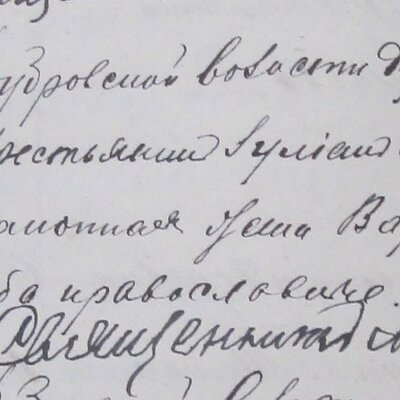 убровской волости Д
рестьянин Іуліан
аконная жена Вар
ба православные.
Священникъ